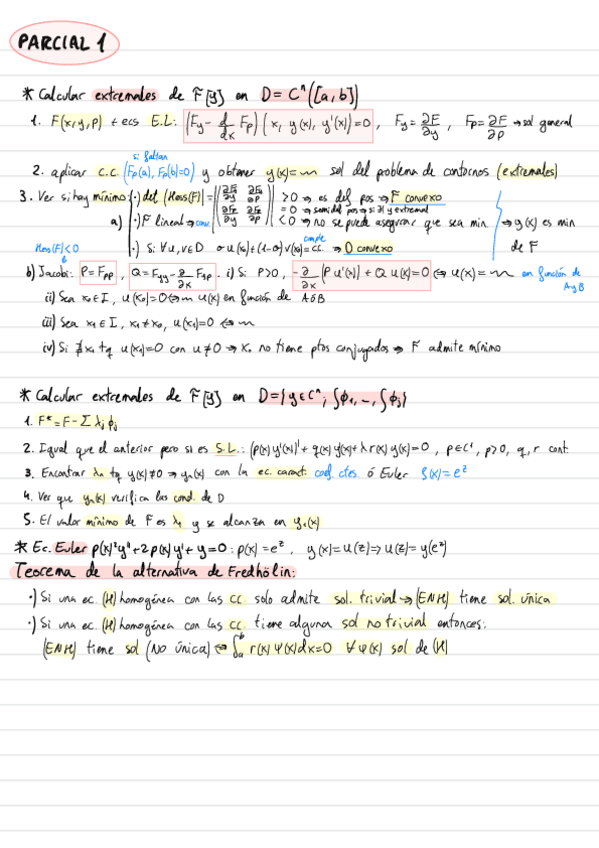 PARCIAL 1
* Calcular extremales de F̃[y] en D = Cⁿ([a,b])
1. F(x,y,p) + ecs E.L: (Fy - d/dx Fp)(x, y(x), y'(x)) = 0 , Fy = ∂F/∂y , Fp = ∂F/∂p → sol general
si faltan
2. aplicar c.c (Fp(a), Fp(b)=0) y obtener y(x)= sol del problema de contornos (extremales)
3. Ver si hay mínimo: ·) det (Hess(F)) = > 0 → es def pos → F convexo
= 0 → semidef pos → si ∃! y extremal
< 0 → no se puede asegurar que sea min
a) ·) F lineal → conv
→ y(x) es min de F
·) Si ∀u,v∈D = cumple c.c. → D convexo
Hess(F)<0
b) Jacobi: P = Fpp , Q = Fyy - ∂/∂x Fyp . i) Si P>0, -∂/∂x (P u'(x)) + Q u(x) = 0 ⇔ u(x) = en función de A y B
ii) Sea x₀∈I, u(x₀)=0 ⇔ u(x) en función de A ó B
iii) Sea x₁∈I, x₁≠x₀, u(x₁)=0 ⇔
iv) Si ∄x₁ tq u(x₁)=0 con u≠0 → x₀ no tiene ptos conjugados → F admite mínimo
* Calcular extremales de F̃[y] en D={y∈Cⁿ; ∫ϕ₁,..., ∫ϕⱼ}
1. F* = F - Σ λⱼ ϕⱼ
2. Igual que el anterior pero si es S.L.: (p(x)y'(x))' + q(x)y(x) + λ r(x) y(x) = 0 , p∈C¹, p>0, q, r cont.
3. Encontrar λₙ tq y(x)≠0 → yₙ(x) con la ec. caract. coef. ctes. ó Euler ρ(x)=e^z
4. Ver que yₙ(x) verifica las cond. de D
5. El valor mínimo de F es λ₁ y se alcanza en y₁(x)
* Ec. Euler p(x)²y'' + 2p(x)y' + y = 0 : p(x) = e^z , y(x) = u(z) ⇒ u(z) = y(e^z)
Teorema de la alternativa de Fredhölin:
·) Si una ec. (H) homogénea con las cc. solo admite sol. trivial → (ENH) tiene sol. única
·) Si una ec. (H) homogénea con las cc. tiene alguna sol no trivial entonces:
(ENH) tiene sol (NO única) ⇔ ∫ₐᵇ r(x) ψ(x) dx = 0 ∀φ(x) sol de (H)